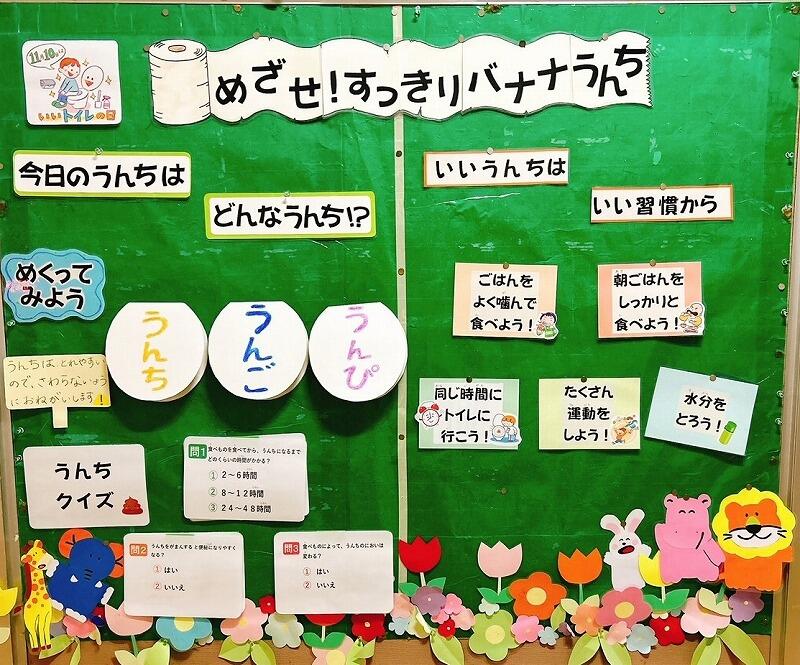 11月10日は
いいトイレの日
めざせ!すっきりバナナうんち
今日のうんちは
どんなうんち!?
めくって
みよう
うんち
うんご
うんぴ
うんちは、とれやすい
ので、さわらないよう
におねがいします!
うんち
クイズ
問1 食べものを食べてから、うんちになるまで
どのくらいの時間がかかる?
① 2〜6時間
② 8〜12時間
③ 24〜48時間
問2 うんちをがまんすると便秘になりやすく
なる?
① はい
② いいえ
問3 食べものによって、うんちのにおいは
変わる?
① はい
② いいえ
いいうんちは
いい習慣から
ごはんを
よく噛んで
食べよう!
朝ごはんを
しっかりと
食べよう!
同じ時間に
トイレに
行こう!
たくさん
運動を
しよう!
水分を
とろう!